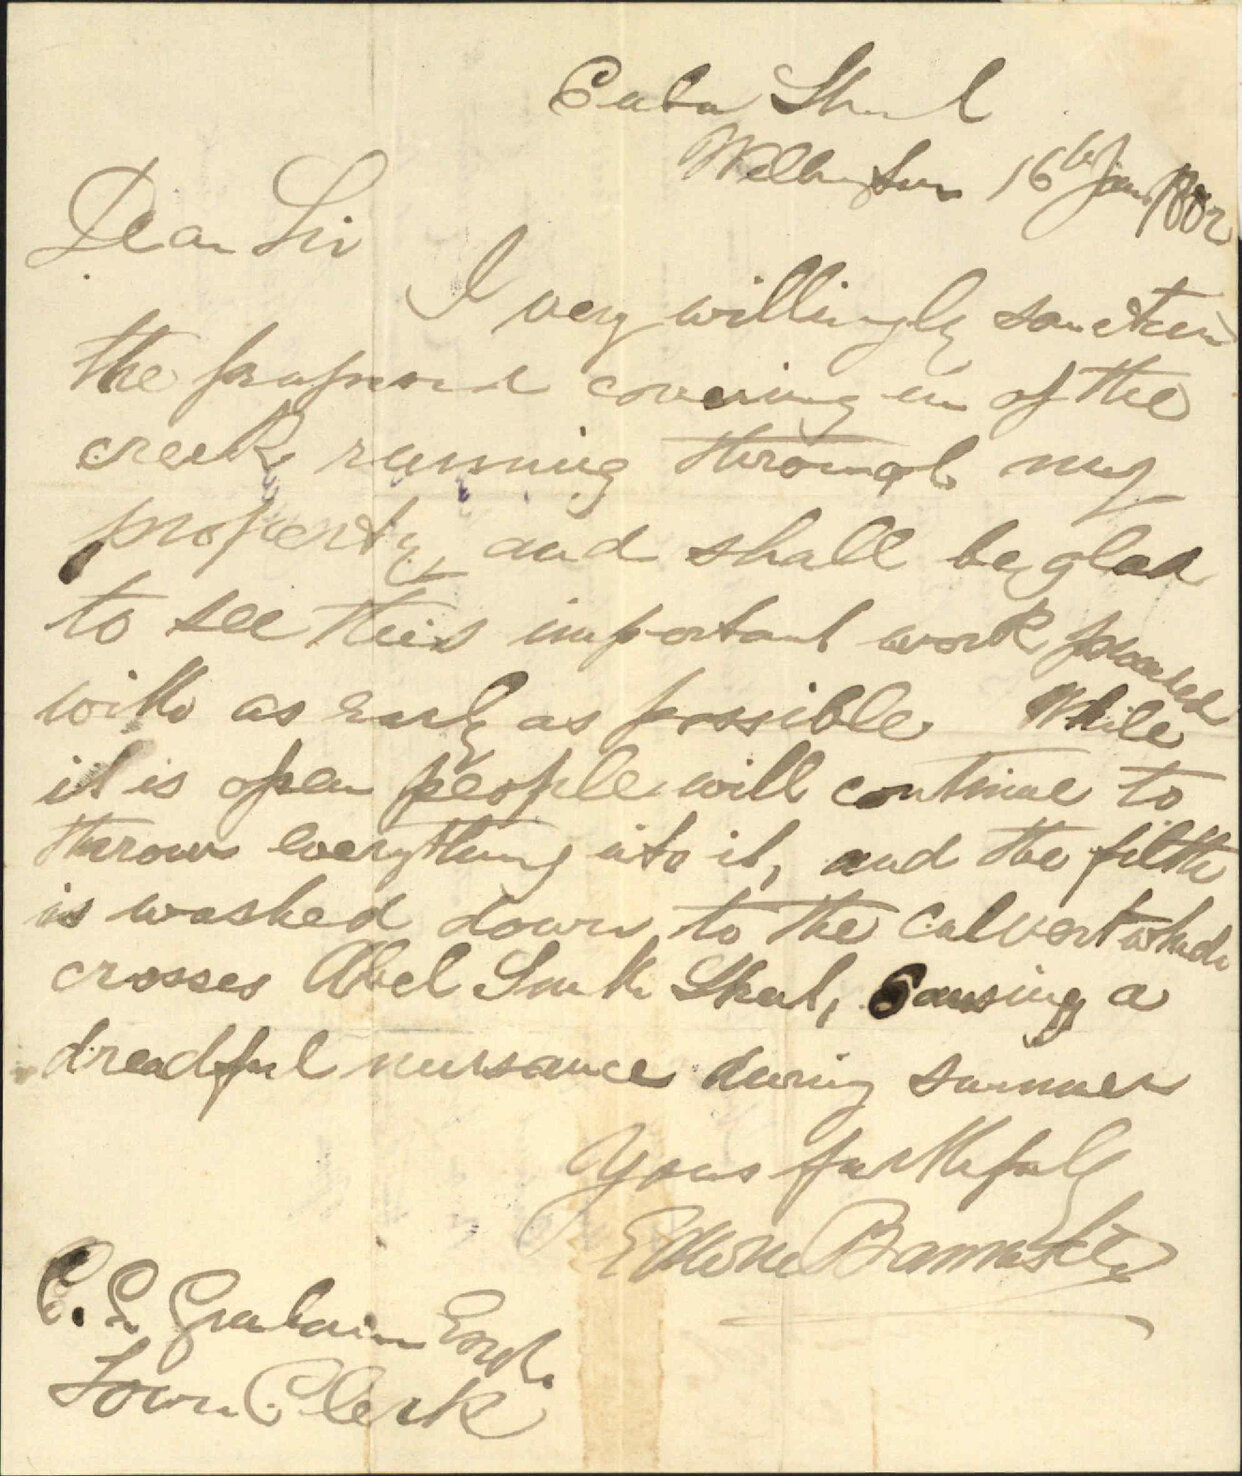 Cuba Street
Wellington 16th Jany 1882
Dear Sir
I very willingly sanction
the proposed covering in of the
creek running through my
property, and shall be glad
to see this important work proceeded
with as early as possible While
it is open people will continue to
throw everything into it, and the filth
is washed down to the Culvert which
crosses Abel Smith Street, causing a
dreadful nuisance during summer
Yours faithfully
C. C. Graham Esqre
Town Clerk